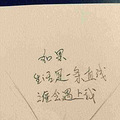 如果
生活是一条直线
谁会遇上我